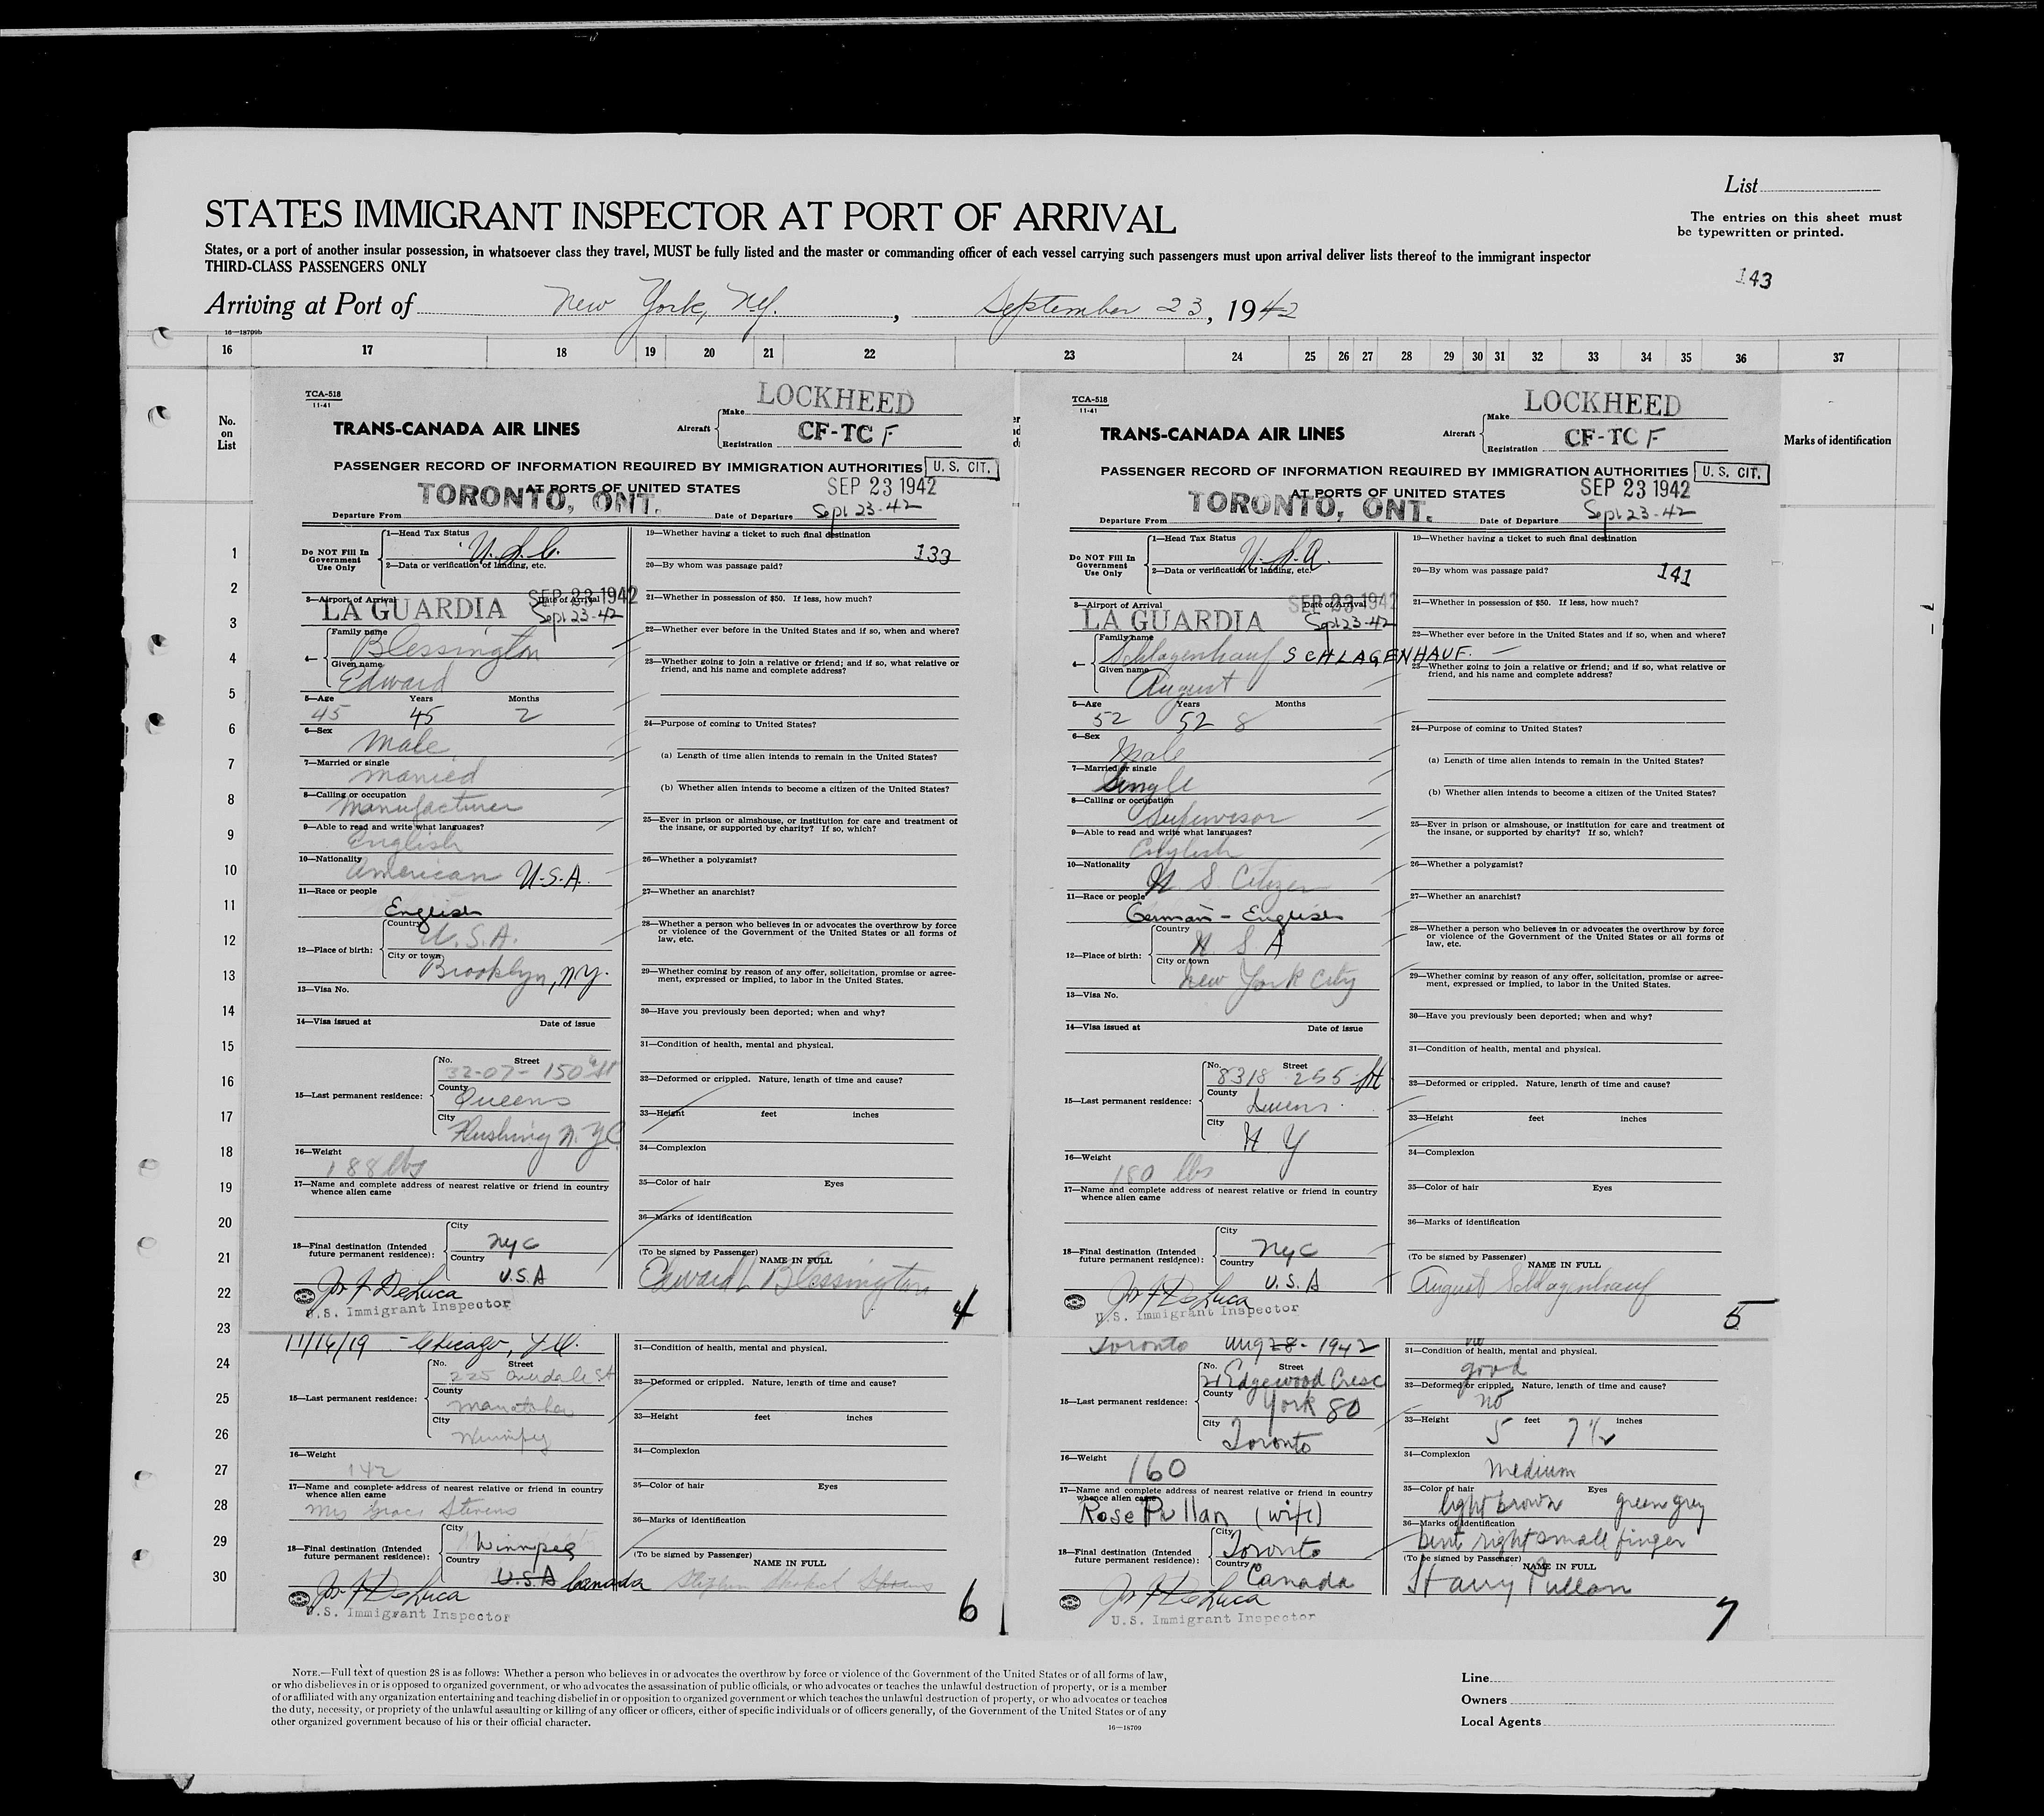 List
STATES IMMIGRANT INSPECTOR AT PORT OF ARRIVAL
The entries on this sheet must
be typewritten or printed.
States, or a port of another insular possession, in whatsoever class they travel, MUST be fully listed and the master or commanding officer of each vessel carrying such passengers must upon arrival deliver lists thereof to the immigrant inspector
THIRD-CLASS PASSENGERS ONLY
143
Arriving at Port of New York, N.Y. , September 23, 1942
16—18709b
16 17 18 19 20 21 22 23 24 25 26 27 28 29 30 31 32 33 34 35 36 37
No.
on
List
Marks of identification
1
2
3
4
5
6
7
8
9
10
11
12
13
14
15
16
17
18
19
20
21
22
23
24
25
26
27
28
29
30
TCA-518
11-41
LOCKHEED
Make
TRANS-CANADA AIR LINES
Aircraft
CF-TC F
Registration
PASSENGER RECORD OF INFORMATION REQUIRED BY IMMIGRATION AUTHORITIES
U. S. CIT.
AT PORTS OF UNITED STATES
SEP 23 1942
TORONTO, ONT.
Departure From
Date of Departure Sept 23-42
Do NOT Fill In
Government
Use Only
1—Head Tax Status
U.S.C.
2—Data or verification of landing, etc.
3—Airport of Arrival
Date of Arrival
SEP 23 1942
LA GUARDIA
Sept 23-42
4—
Family name
Blessington
Given name
Edward
5—Age Years Months
45 45 2
6—Sex
Male
7—Married or single
Married
8—Calling or occupation
Manufacturer
9—Able to read and write what languages?
English
10—Nationality
American U.S.A.
11—Race or people
English
12—Place of birth:
Country
U.S.A.
City or town
Brooklyn, NY.
13—Visa No.
14—Visa issued at Date of issue
15—Last permanent residence:
No. Street
32-07- 150th St
County
Queens
City
Flushing N.Y.C
16—Weight
188 lbs
17—Name and complete address of nearest relative or friend in country
whence alien came
18—Final destination (Intended
future permanent residence):
City
NYC
Country
U.S.A
Jos F. DeLuca
U.S. Immigrant Inspector
19—Whether having a ticket to such final destination
133
20—By whom was passage paid?
21—Whether in possession of $50. If less, how much?
22—Whether ever before in the United States and if so, when and where?
23—Whether going to join a relative or friend; and if so, what relative or
friend, and his name and complete address?
24—Purpose of coming to United States?
(a) Length of time alien intends to remain in the United States?
(b) Whether alien intends to become a citizen of the United States?
25—Ever in prison or almshouse, or institution for care and treatment of
the insane, or supported by charity? If so, which?
26—Whether a polygamist?
27—Whether an anarchist?
28—Whether a person who believes in or advocates the overthrow by force
or violence of the Government of the United States or all forms of
law, etc.
29—Whether coming by reason of any offer, solicitation, promise or agree-
ment, expressed or implied, to labor in the United States.
30—Have you previously been deported; when and why?
31—Condition of health, mental and physical.
32—Deformed or crippled. Nature, length of time and cause?
33—Height feet inches
34—Complexion
35—Color of hair Eyes
36—Marks of identification
(To be signed by Passenger)
NAME IN FULL
Edward L Blessington
4
TCA-518
11-41
LOCKHEED
Make
TRANS-CANADA AIR LINES
Aircraft
CF-TC F
Registration
PASSENGER RECORD OF INFORMATION REQUIRED BY IMMIGRATION AUTHORITIES
U. S. CIT.
AT PORTS OF UNITED STATES
SEP 23 1942
TORONTO, ONT.
Departure From
Date of Departure Sept 23-42
Do NOT Fill In
Government
Use Only
1—Head Tax Status
2—Data or verification of landing, etc.
3—Airport of Arrival
Date of Arrival
SEP 23 1942
LA GUARDIA
Sept 23-42
4—
Family name
Schlagenhauf SCHLAGENHAUF.
Given name
August
5—Age Years Months
52 52 8
6—Sex
Male
7—Married or single
Single
8—Calling or occupation
Supervisor
9—Able to read and write what languages?
English
10—Nationality
U S Citizen
11—Race or people
German - English
12—Place of birth:
Country
U S A
City or town
New York City
13—Visa No.
14—Visa issued at Date of issue
15—Last permanent residence:
No. Street
8318 255 St
County
City
N Y
16—Weight
180 lbs
17—Name and complete address of nearest relative or friend in country
whence alien came
18—Final destination (Intended
future permanent residence):
City
NYC
Country
U.S.A
Jos F DeLuca
U.S. Immigrant Inspector
19—Whether having a ticket to such final destination
20—By whom was passage paid?
141
21—Whether in possession of $50. If less, how much?
22—Whether ever before in the United States and if so, when and where?
23—Whether going to join a relative or friend; and if so, what relative or
friend, and his name and complete address?
24—Purpose of coming to United States?
(a) Length of time alien intends to remain in the United States?
(b) Whether alien intends to become a citizen of the United States?
25—Ever in prison or almshouse, or institution for care and treatment of
the insane, or supported by charity? If so, which?
26—Whether a polygamist?
27—Whether an anarchist?
28—Whether a person who believes in or advocates the overthrow by force
or violence of the Government of the United States or all forms of
law, etc.
29—Whether coming by reason of any offer, solicitation, promise or agree-
ment, expressed or implied, to labor in the United States.
30—Have you previously been deported; when and why?
31—Condition of health, mental and physical.
32—Deformed or crippled. Nature, length of time and cause?
33—Height feet inches
34—Complexion
35—Color of hair Eyes
36—Marks of identification
(To be signed by Passenger)
NAME IN FULL
August Schlagenhauf
5
11/16/19 - Chicago, Ill.
15—Last permanent residence:
No. Street
225 St
County
City
Winnipeg
16—Weight
142
17—Name and complete address of nearest relative or friend in country
whence alien came
Mrs Grace Stevens
18—Final destination (Intended
future permanent residence):
City
Winnipeg
Country
U.S.A Canada
Jos F DeLuca
U.S. Immigrant Inspector
31—Condition of health, mental and physical.
32—Deformed or crippled. Nature, length of time and cause?
33—Height feet inches
34—Complexion
35—Color of hair Eyes
36—Marks of identification
(To be signed by Passenger)
NAME IN FULL
6
Toronto Aug 28 - 1942
15—Last permanent residence:
No. Street
21 Edgewood Cresc
County
York 80
City
Toronto
16—Weight
160
17—Name and complete address of nearest relative or friend in country
whence alien came
Rose Pullan (wife)
18—Final destination (Intended
future permanent residence):
City
Toronto
Country
Canada
Jos F DeLuca
U.S. Immigrant Inspector
no
31—Condition of health, mental and physical.
good
32—Deformed or crippled. Nature, length of time and cause?
no
33—Height feet inches
5 7 1/2
34—Complexion
Medium
35—Color of hair Eyes
light brown green grey
36—Marks of identification
bent right small finger
(To be signed by Passenger)
NAME IN FULL
Harry Pullan
7
NOTE.—Full text of question 28 is as follows: Whether a person who believes in or advocates the overthrow by force or violence of the Government of the United States or of all forms of law,
or who disbelieves in or is opposed to organized government, or who advocates the assassination of public officials, or who advocates or teaches the unlawful destruction of property, or is a member
of or affiliated with any organization entertaining and teaching disbelief in or opposition to organized government or which teaches the unlawful destruction of property, or who advocates or teaches
the duty, necessity, or propriety of the unlawful assaulting or killing of any officer or officers, either of specific individuals or of officers generally, of the Government of the United States or of any
other organized government because of his or their official character.
16—18709
Line
Owners
Local Agents